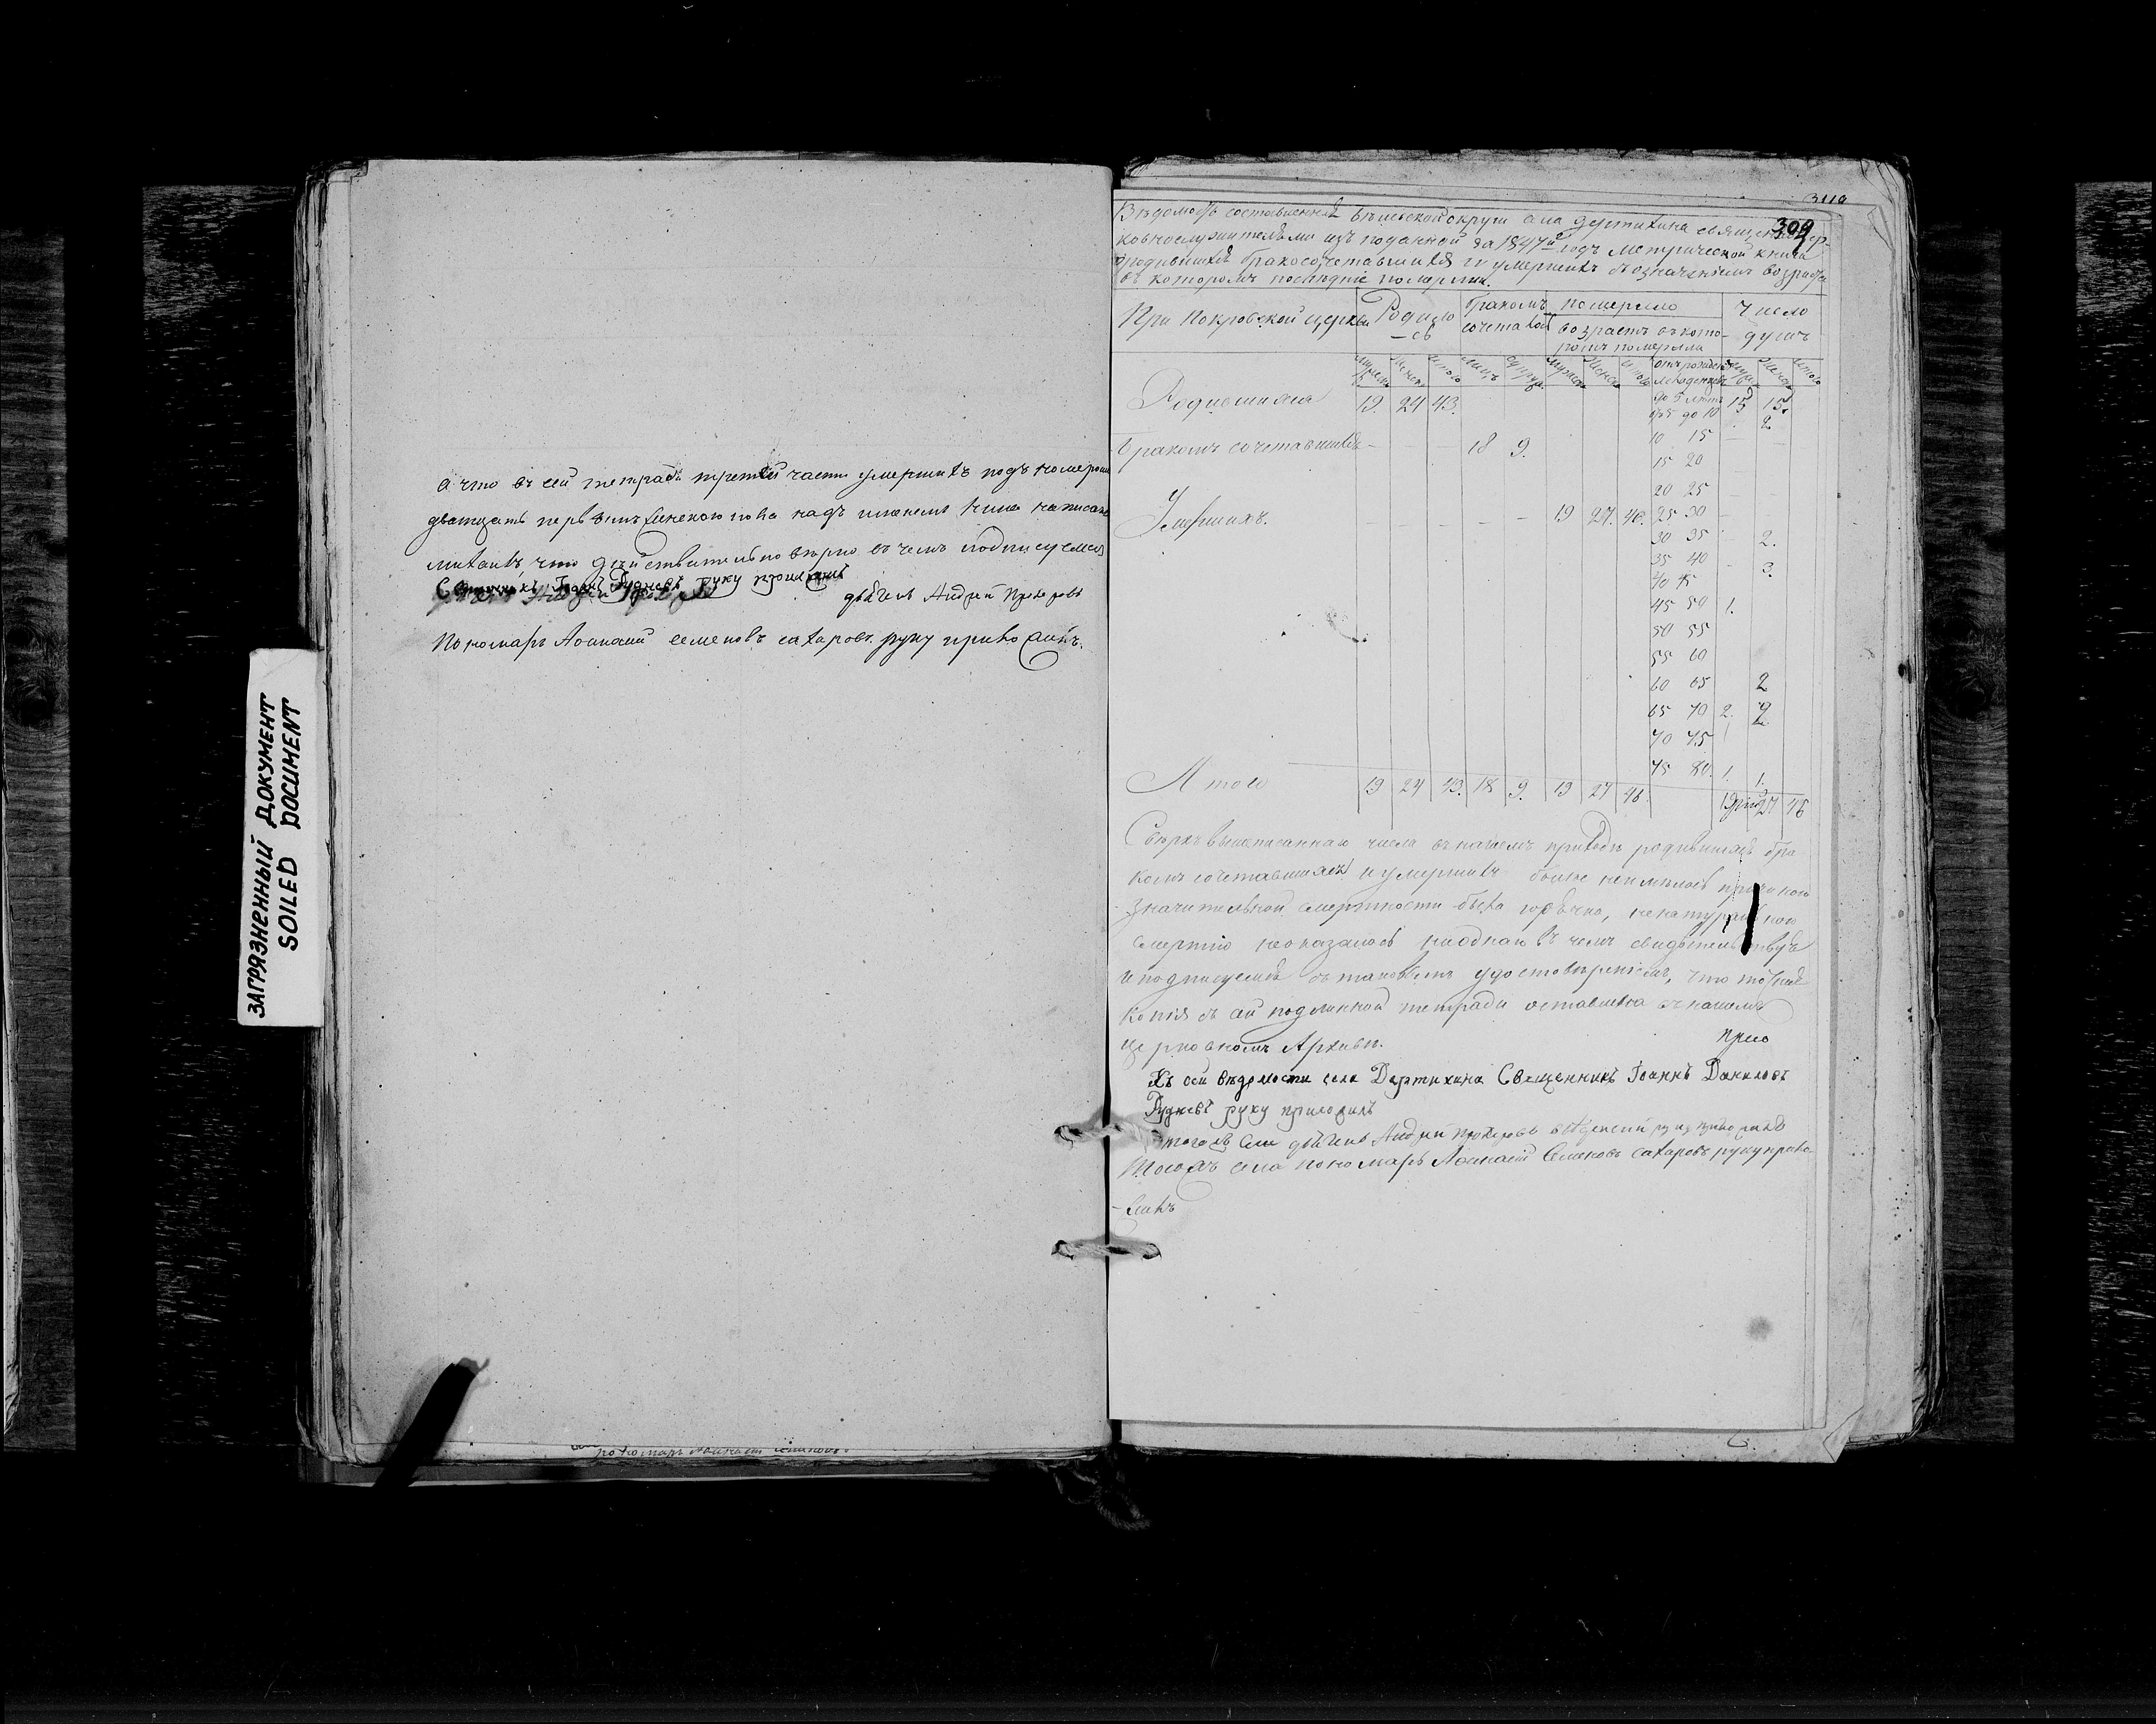 а что въ сей тетради третей части умершихъ подъ номеромъ
дватцать первымъ женскаго пола надъ именемъ
что действительно верно въ чемъ подписуемся
Священникъ Іоаннъ Рудневъ руку приложилъ
дьячекъ Андрей Прохоровъ
Пономарь Афанасий Семеновъ Сахаровъ руку приложилъ.
ЗАГРЯЗНЕННЫЙ ДОКУМЕНТ
SOILED DOCUMENT
309
Ведомость составленная округи села Дертихина священно цер-
ковнослужителями изъ поданной за 1847й годъ метрической книги
о родившихся бракосочетавшихся и умершихъ съ означениемъ возраста
въ которомъ последние померли.
При Покровской церкви Родило-сь бракомъ сочеталось померло число душъ
возрастъ въ кото-ромъ померли
мужеска женска итого лицъ мужеска женска итого отъ рождения младенцевъ женска итого
до 5 летъ 15 15.
Родившихся 19. 24 43. отъ 5 до 10 2
10 15
Бракомъ сочетавшихся - - - 18 9.
15 20
20 25
Умершихъ. - - - - - 19 27. 46. 25 30
30 35 2.
35 40 3.
40 45
45 50 1.
50 55
55 60
60 65 2
65 70 2. 2
70 75
75 80. 1. 1.
Итого 19 24 43. 18 9. 19 27 46. 19 27 46
Сверхъ вышеписаннаго числа въ нашемъ приходе родившихся бра
комъ сочетавшихся и умершихъ более неимелось причиною
значительной смертности была горячка, ненатуральною
смертию неоказалось ниоднаго въ чемъ свидетельствуемъ
и подписуемся съ таковымъ удостоверениемъ, что точная
копия съ сей подлинной тетради оставлена въ нашемъ
церковномъ Архиве.
Къ сей ведомости села Дертихина Священникъ Іоаннъ Даниловъ
Рудневъ руку приложилъ
тогожъ села дьячекъ Андрей Прохоровъ руку приложилъ
Тогожъ села пономарь Афанасий Семеновъ Сахаровъ руку прило-
-жилъ